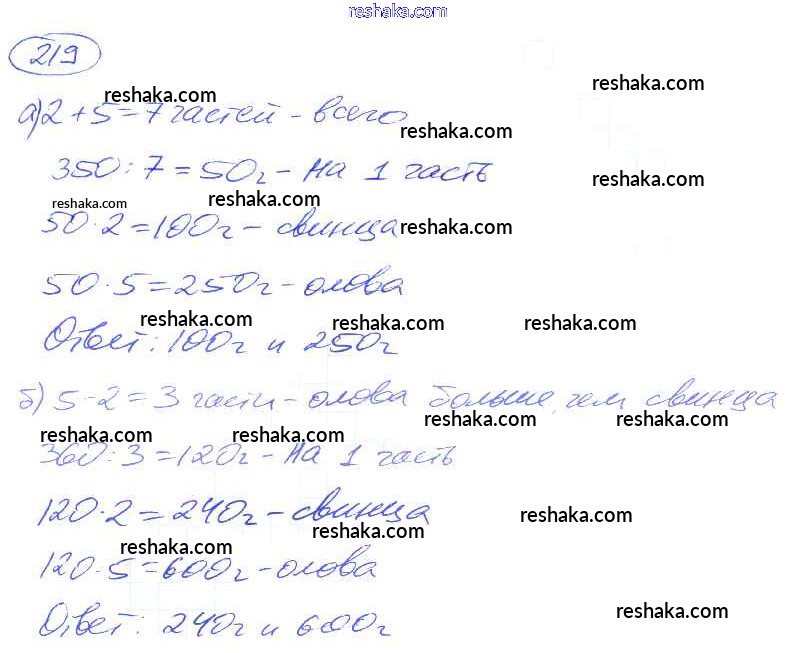 reshaka.com
219
reshaka.com
reshaka.com
а) 2 + 5 = 7 частей - всего
reshaka.com
350 : 7 = 50г - на 1 часть
reshaka.com
reshaka.com
reshaka.com
50 · 2 = 100г - свинца
reshaka.com
50 · 5 = 250г - олова
reshaka.com
reshaka.com
reshaka.com
Ответ: 100г и 250г
б) 5 - 2 = 3 части - олова больше, чем свинца
reshaka.com
reshaka.com
reshaka.com
reshaka.com
360 : 3 = 120г - на 1 часть
120 · 2 = 240г - свинца
reshaka.com
reshaka.com
reshaka.com
120 · 5 = 600г - олова
Ответ: 240г и 600г
reshaka.com